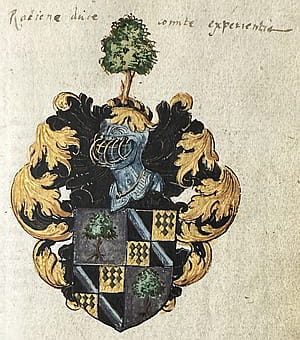 Ratione duce comite experientia